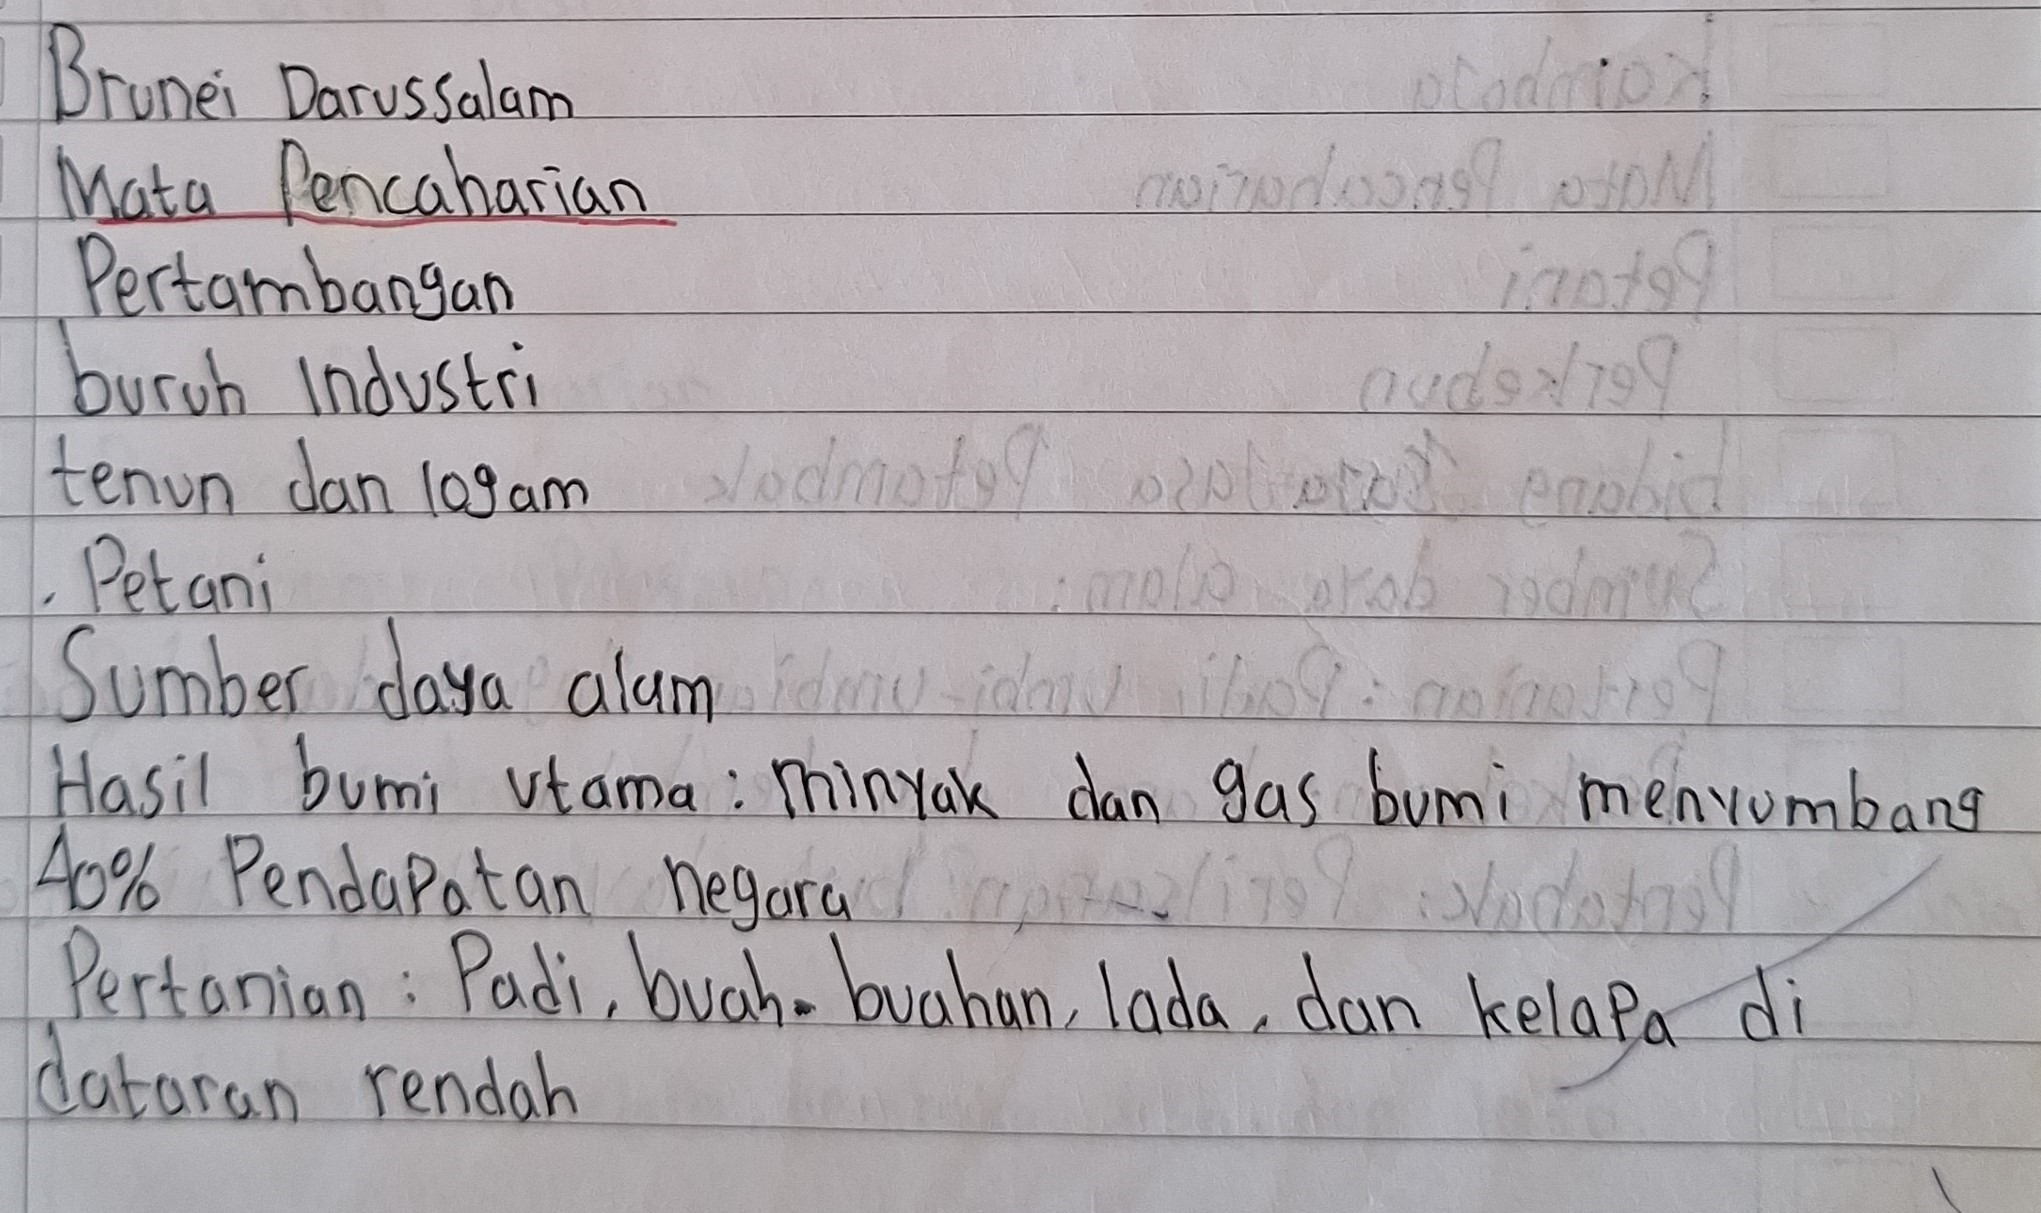 Brunei Darussalam
Mata Pencaharian
Pertambangan
buruh Industri
tenun dan logam
. Petani
Sumber daya alam
Hasil bumi utama : Minyak dan gas bumi menyumbang
40% Pendapatan negara
Pertanian : Padi, buah-buahan, lada, dan kelapa di
dataran rendah